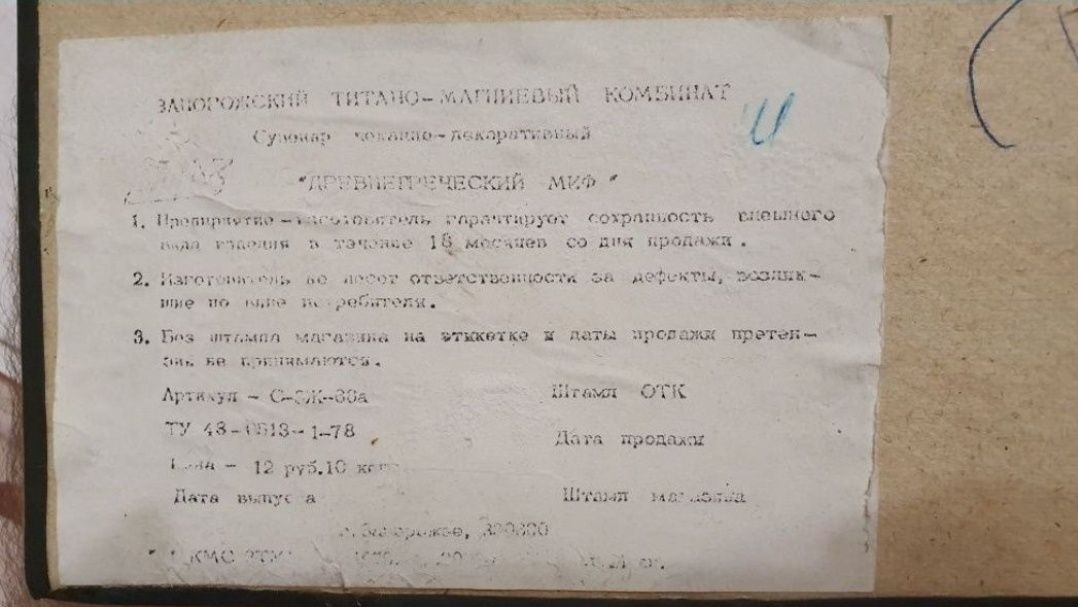 ЗАПОРОЖСКИЙ ТИТАНО-МАГНИЕВЫЙ КОМБИНАТ
Сувенир чеканно-декоративный
"ДРЕВНЕГРЕЧЕСКИЙ МИФ"
1. Предприятие-изготовитель гарантирует сохранность внешнего
вида изделия в течение 18 месяцев со дня продажи.
2. Изготовитель не несет ответственности за дефекты, возник-
шие по вине потребителя.
3. Без штампа магазина на этикетке и даты продажи претен-
зии не принимаются.
Артикул -
Штамп ОТК
ТУ 48-0513-1-78
Дата продажи
Цена - 12 руб.10 коп.
Дата выпуска
Штамп магазина
г.Запорожье, 330600
КМС ЗТМК